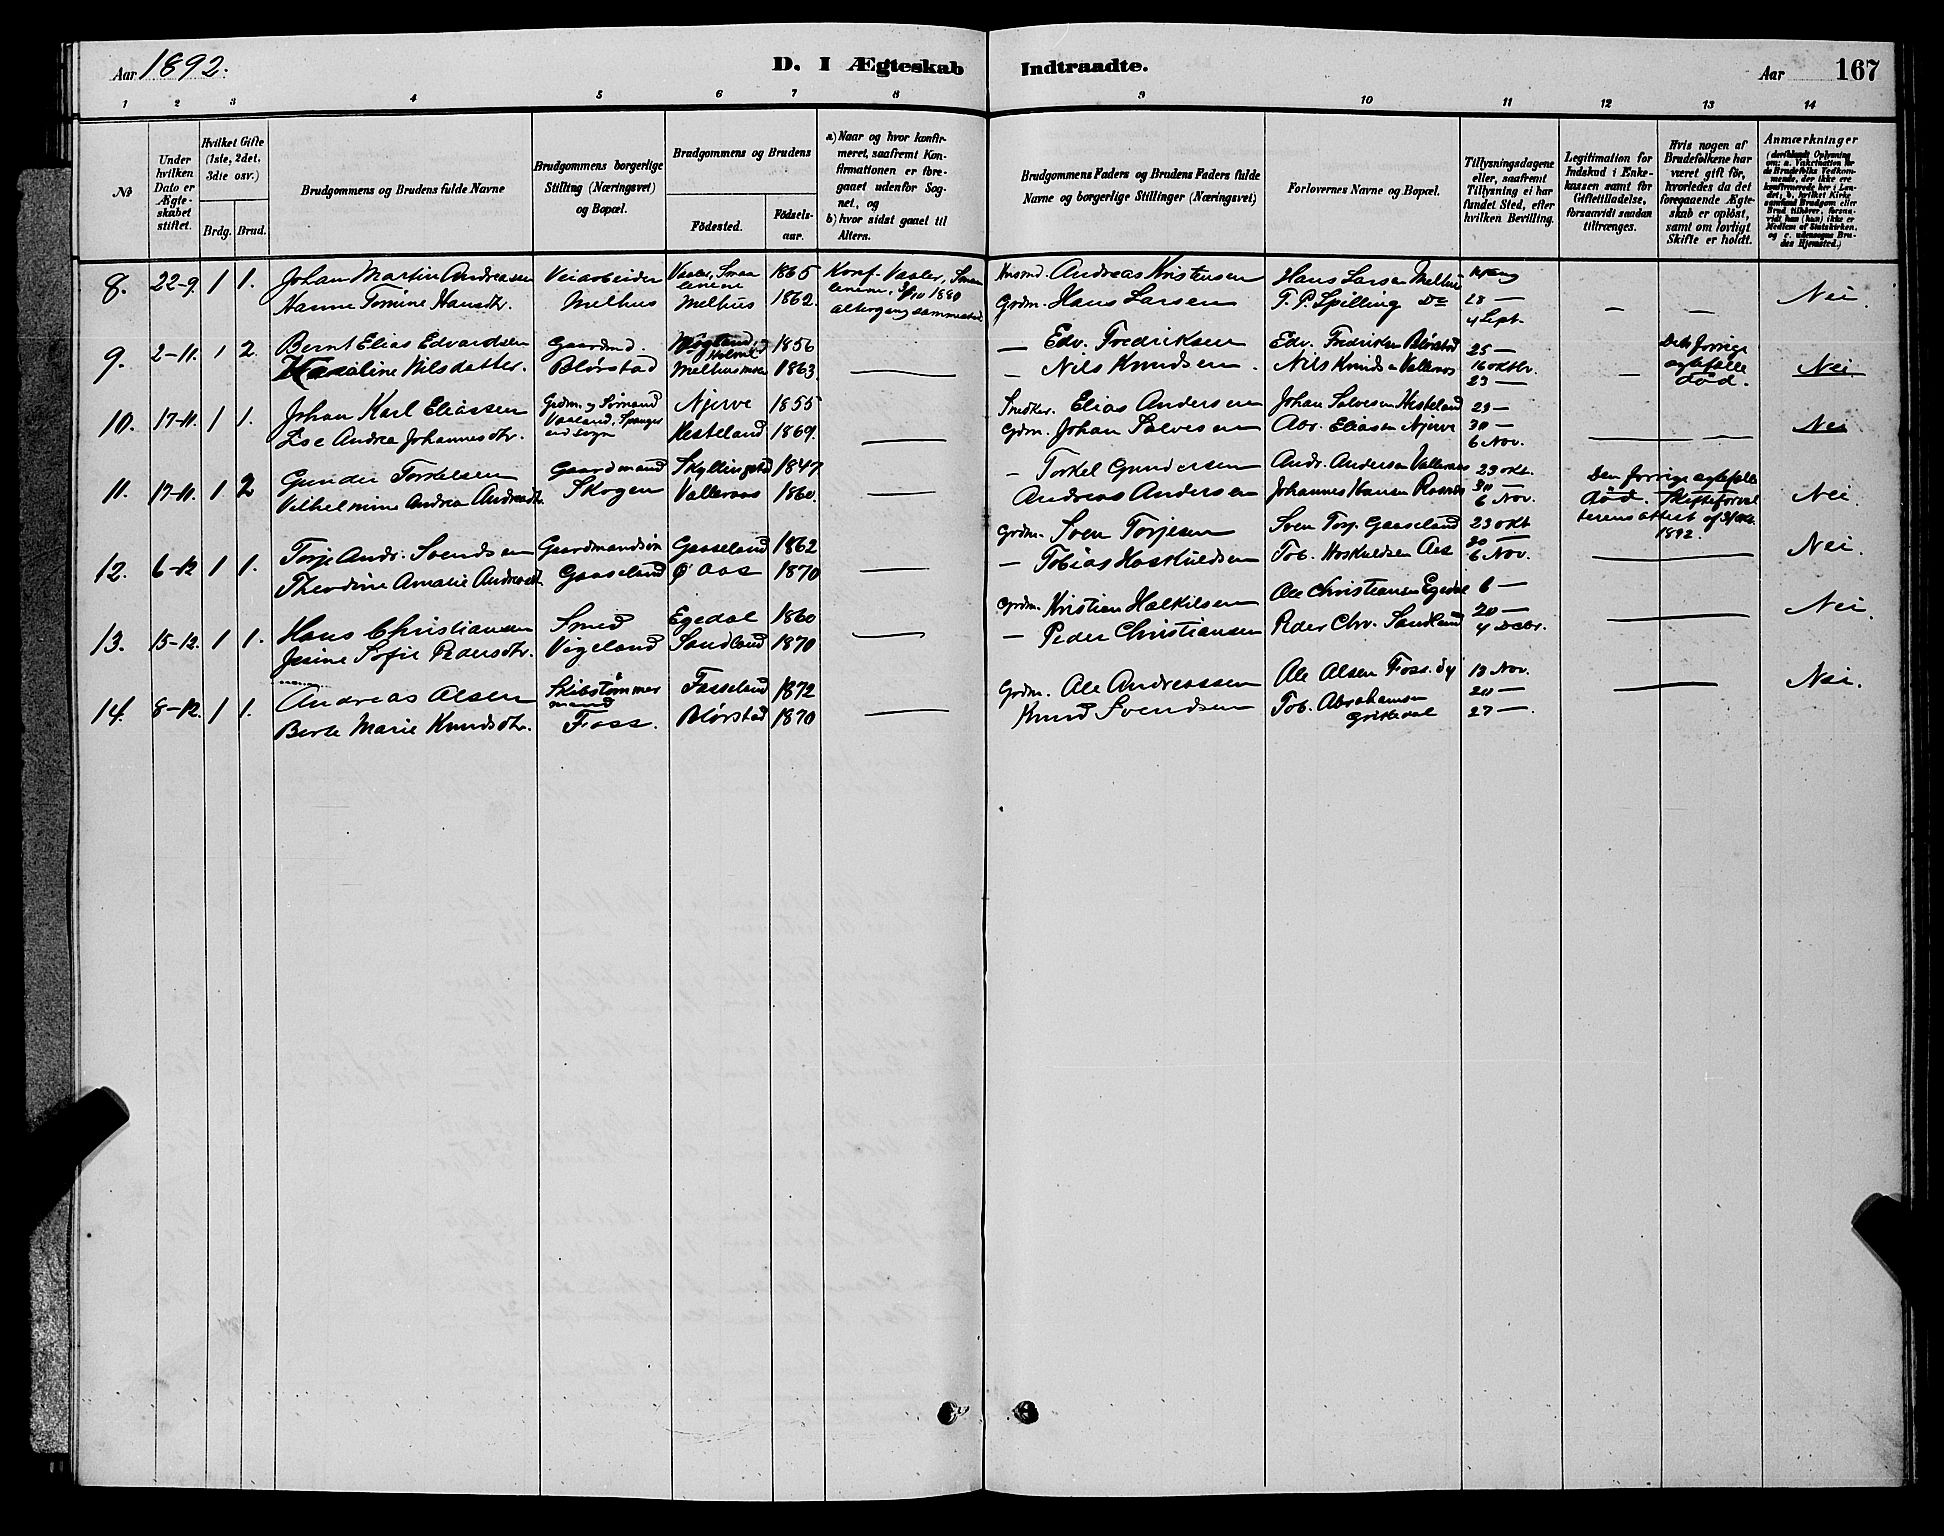 Aar 1892.
D. I Ægteskab Indtraadte.
Aar 167
1 2 3 4 5 6 7 8 9 10 11 12 13 14
No
Under hvilken Dato er Ægteskabet stiftet.
Hvilket Gifte (1ste, 2det, 3die osv.)
Brdg. Brud.
Brudgommens og Brudens fulde Navne
Brudgommens borgerlige Stilling (Næringsvei) og Bopæl.
Brudgommens og Brudens
Fødested.
Fødselsaar.
a) Naar og hvor konfirmeret, saafremt Konfirmationen er foregaaet udenfor Sognet, og
b) hvor sidst gaaet til Alters.
Brudgommens Faders og Brudens Faders fulde Navne og borgerlige Stillinger (Næringsvei)
Forlovernes Navne og Bopæl.
Tillysningsdagene eller, saafremt Tillysning ei har fundet Sted, efter hvilken Bevilling.
Legitimation for Indskud i Enkekassen samt for Giftetilladelse, forsaavidt saadan tiltrænges.
Hvis nogen af Brudefolkene har været gift før, hvorledes da det foregaaende Ægteskab er opløst, samt om lovligt Skifte er holdt.
Anmærkninger
8. 22-9. 1 1. Johan Martin Andreasen Veiarbeider Vaaler, Smaalenene 1865 Konf. Vaaler, Smaalenene, 3/10 1880 Husmd. Andreas Kristensen Hans Larsen Melhus
Hanne Tomine Hansdtr. Melhus Melhus 1862. altergang sammesteds Grdm. Hans Larsen T. P. Spilling Do 28 — 4 Sept. — — Nei.
9. 2-11. 1 2. Bernt Elias Edvardsen Gaardmd. Holmel 1856 — Edv. Fredriksen Edv. Fredriksen Blørstad 25 — Den forrige ægtefælle død.
Nilsdatter. Blørstad Melhusmoen 1863. — — Nils Knudsen. Nils Knudsen Valleraas 16 oktbr. 23 — — Nei
10. 17-11. 1 1. Johan Karl Eliassen Grdm. og Sømand Njerve 1855 Smedker. Elias Andersen Johan Salvesen Hesteland 29 —
Lse Andrea Johannesdtr. Vaaland, Spangereid sogn Hesteland 1869. — Grdm. Johan Salvesen Abr. Eliasen Njerve 30 — 6 Nov. — — Nei
11. 17-11. 1 2 Gunder Torkelsen Gaardmand Skyllingstad 1847 — Torkel Gundersen Andr. Andersen Valleraas 23 okt. Den forrige ægtefælle
Vilhelmine Andrea Andreasdtr. Skogen Valleraas 1860. — Andreas Andersen Johannes Hansen 30 — 6 Nov. død. Skifteforvalterens attest af 31/10 1892. Nei.
12. 6-12 1 1. Torje Andr. Svendsen Gaardmandsøn Gaaseland 1862 Grdm. Sven Torjesen Sven Torj. Gaaseland 23 okt
Theodine Amalie Andreasdt. Gaaseland Ø Aas 1870 — — Tobias Hoskuldsen Tob. Hoskuldsen Aas 30 — 6 Nov. — Nei.
13. 15-12. 1 1. Hans Christiansen Smed Egedal 1860 Grdm. Kristian Halkilsen Ale Christiansen Egedal 6 —
Jesine Sofie Pedersdtr. Vigeland Sandland 1870 — — Peder Christiansen Peder Chr. Sandland 20 — 4 Decbr. — Nei.
14. 8-12. 1 1. Andreas Alsen Skibstømmermand Fasseland 1872 Grdm. Ale Andreassen Ale Alsen Foss. 13 Nov.
Berte Marie Knudsdtr. Foss. Blørstad 1870 — Knud Svendsen Tob. Abrahamsen 20 — 27 — — Nei.